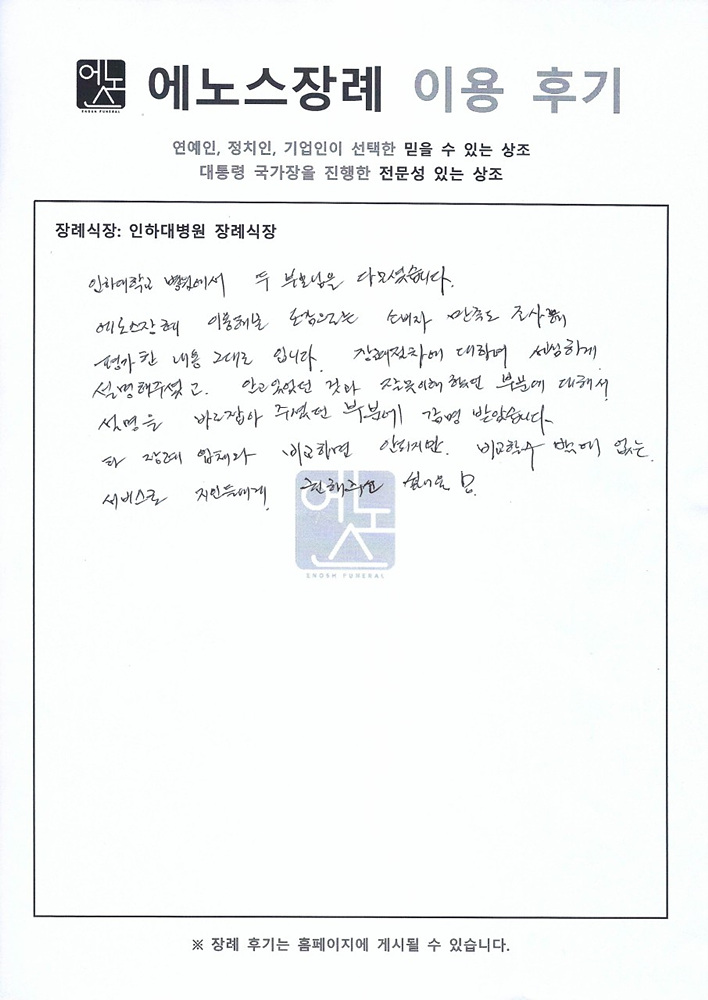 에노스
ENOSH FUNERAL
에노스장례 이용 후기
연예인, 정치인, 기업인이 선택한 믿을 수 있는 상조
대통령 국가장을 진행한 전문성 있는 상조
장례식장: 인하대병원 장례식장
인하대학교 병원에서 두 부모님을 다 모셨습니다.
에노스장례 이용해본 느낌으로는 소비자 만족도 조사
평가한 내용 그대로 입니다. 장례절차에 대하여 세심하게
설명해주셨고. 알고 있었던 것과 잘못이해 했던 부분에 대해서
설명을 바로잡아 주셨던 부분에 감명 받았습니다.
타 장례 업체와 비교하면 안되지만. 비교할수 밖에 없는
서비스로 지인들에게. 권해주고 싶네요
에노스
ENOSH FUNERAL
※ 장례 후기는 홈페이지에 게시될 수 있습니다.